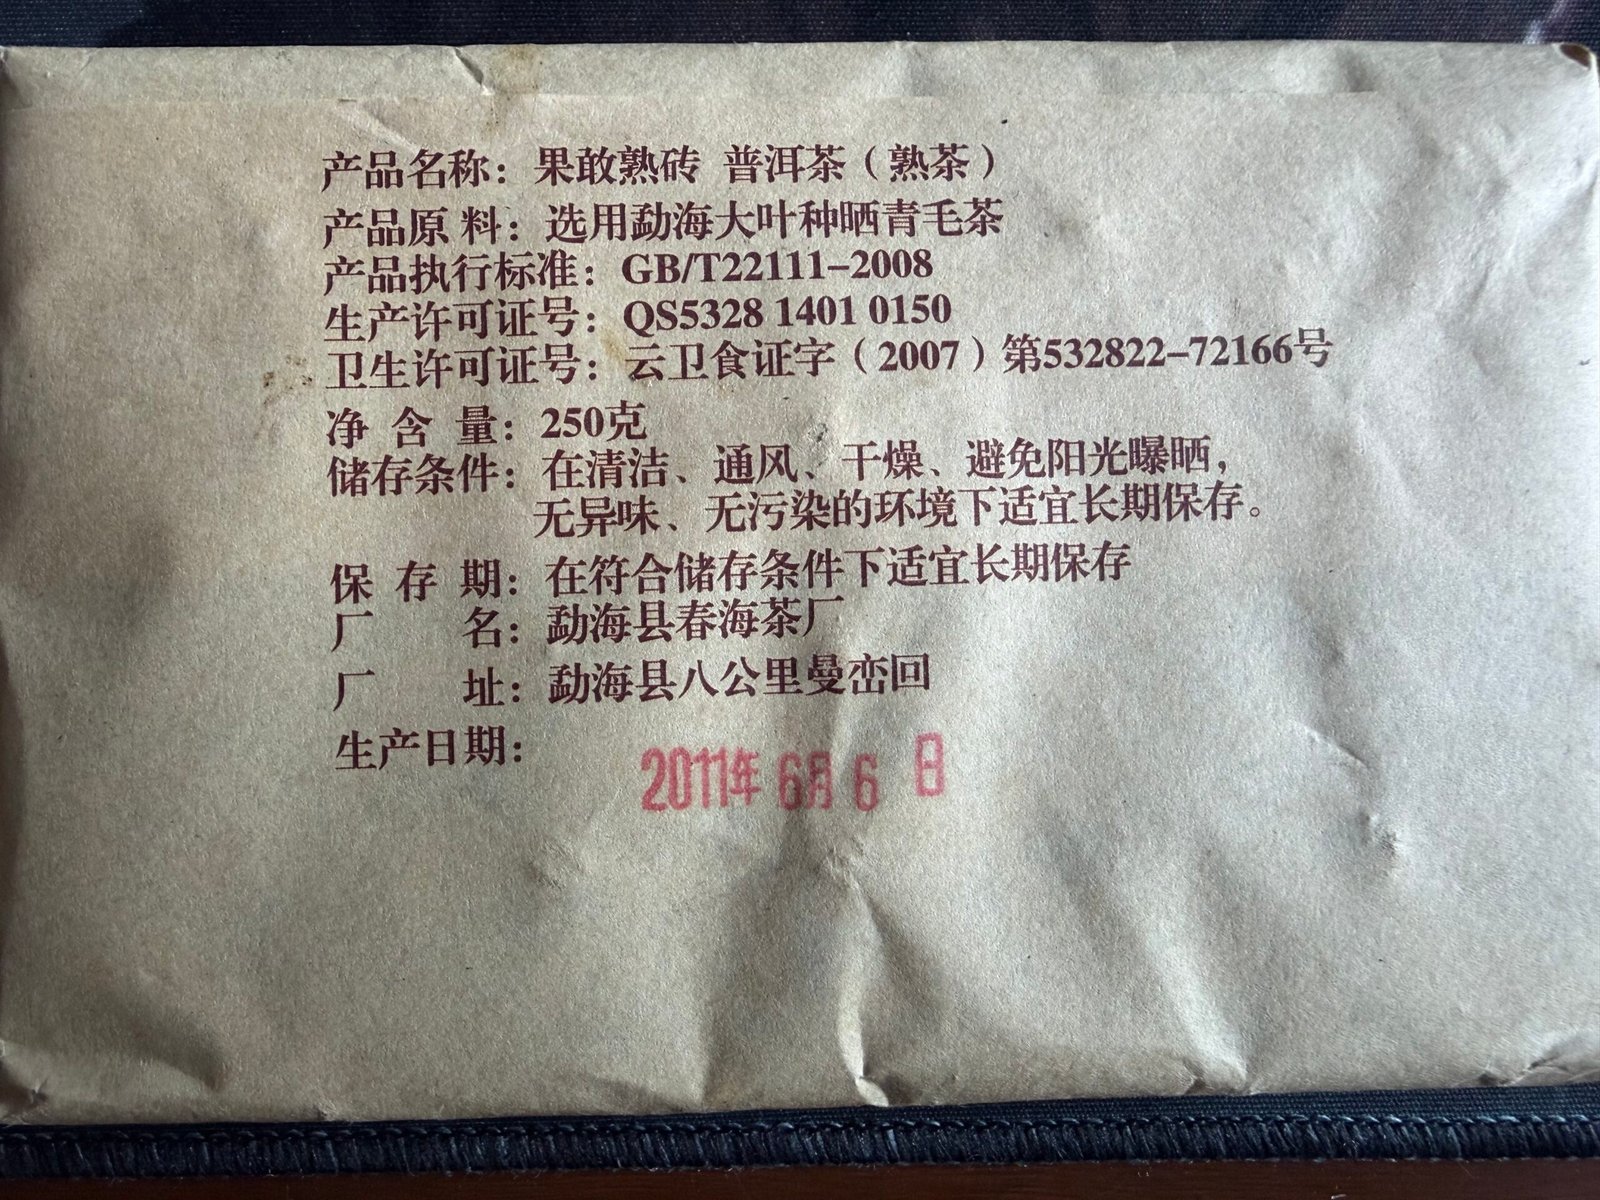 产品名称：果敢熟砖 普洱茶（熟茶）
产品原料：选用勐海大叶种晒青毛茶
产品执行标准：GB/T22111-2008
生产许可证号：QS5328 1401 0150
卫生许可证号：云卫食证字（2007）第532822-72166号
净含量：250克
储存条件：在清洁、通风、干燥、避免阳光曝晒，
无异味、无污染的环境下适宜长期保存。
保存期：在符合储存条件下适宜长期保存
厂名：勐海县春海茶厂
厂址：勐海县八公里曼峦回
生产日期：2011年6月6日